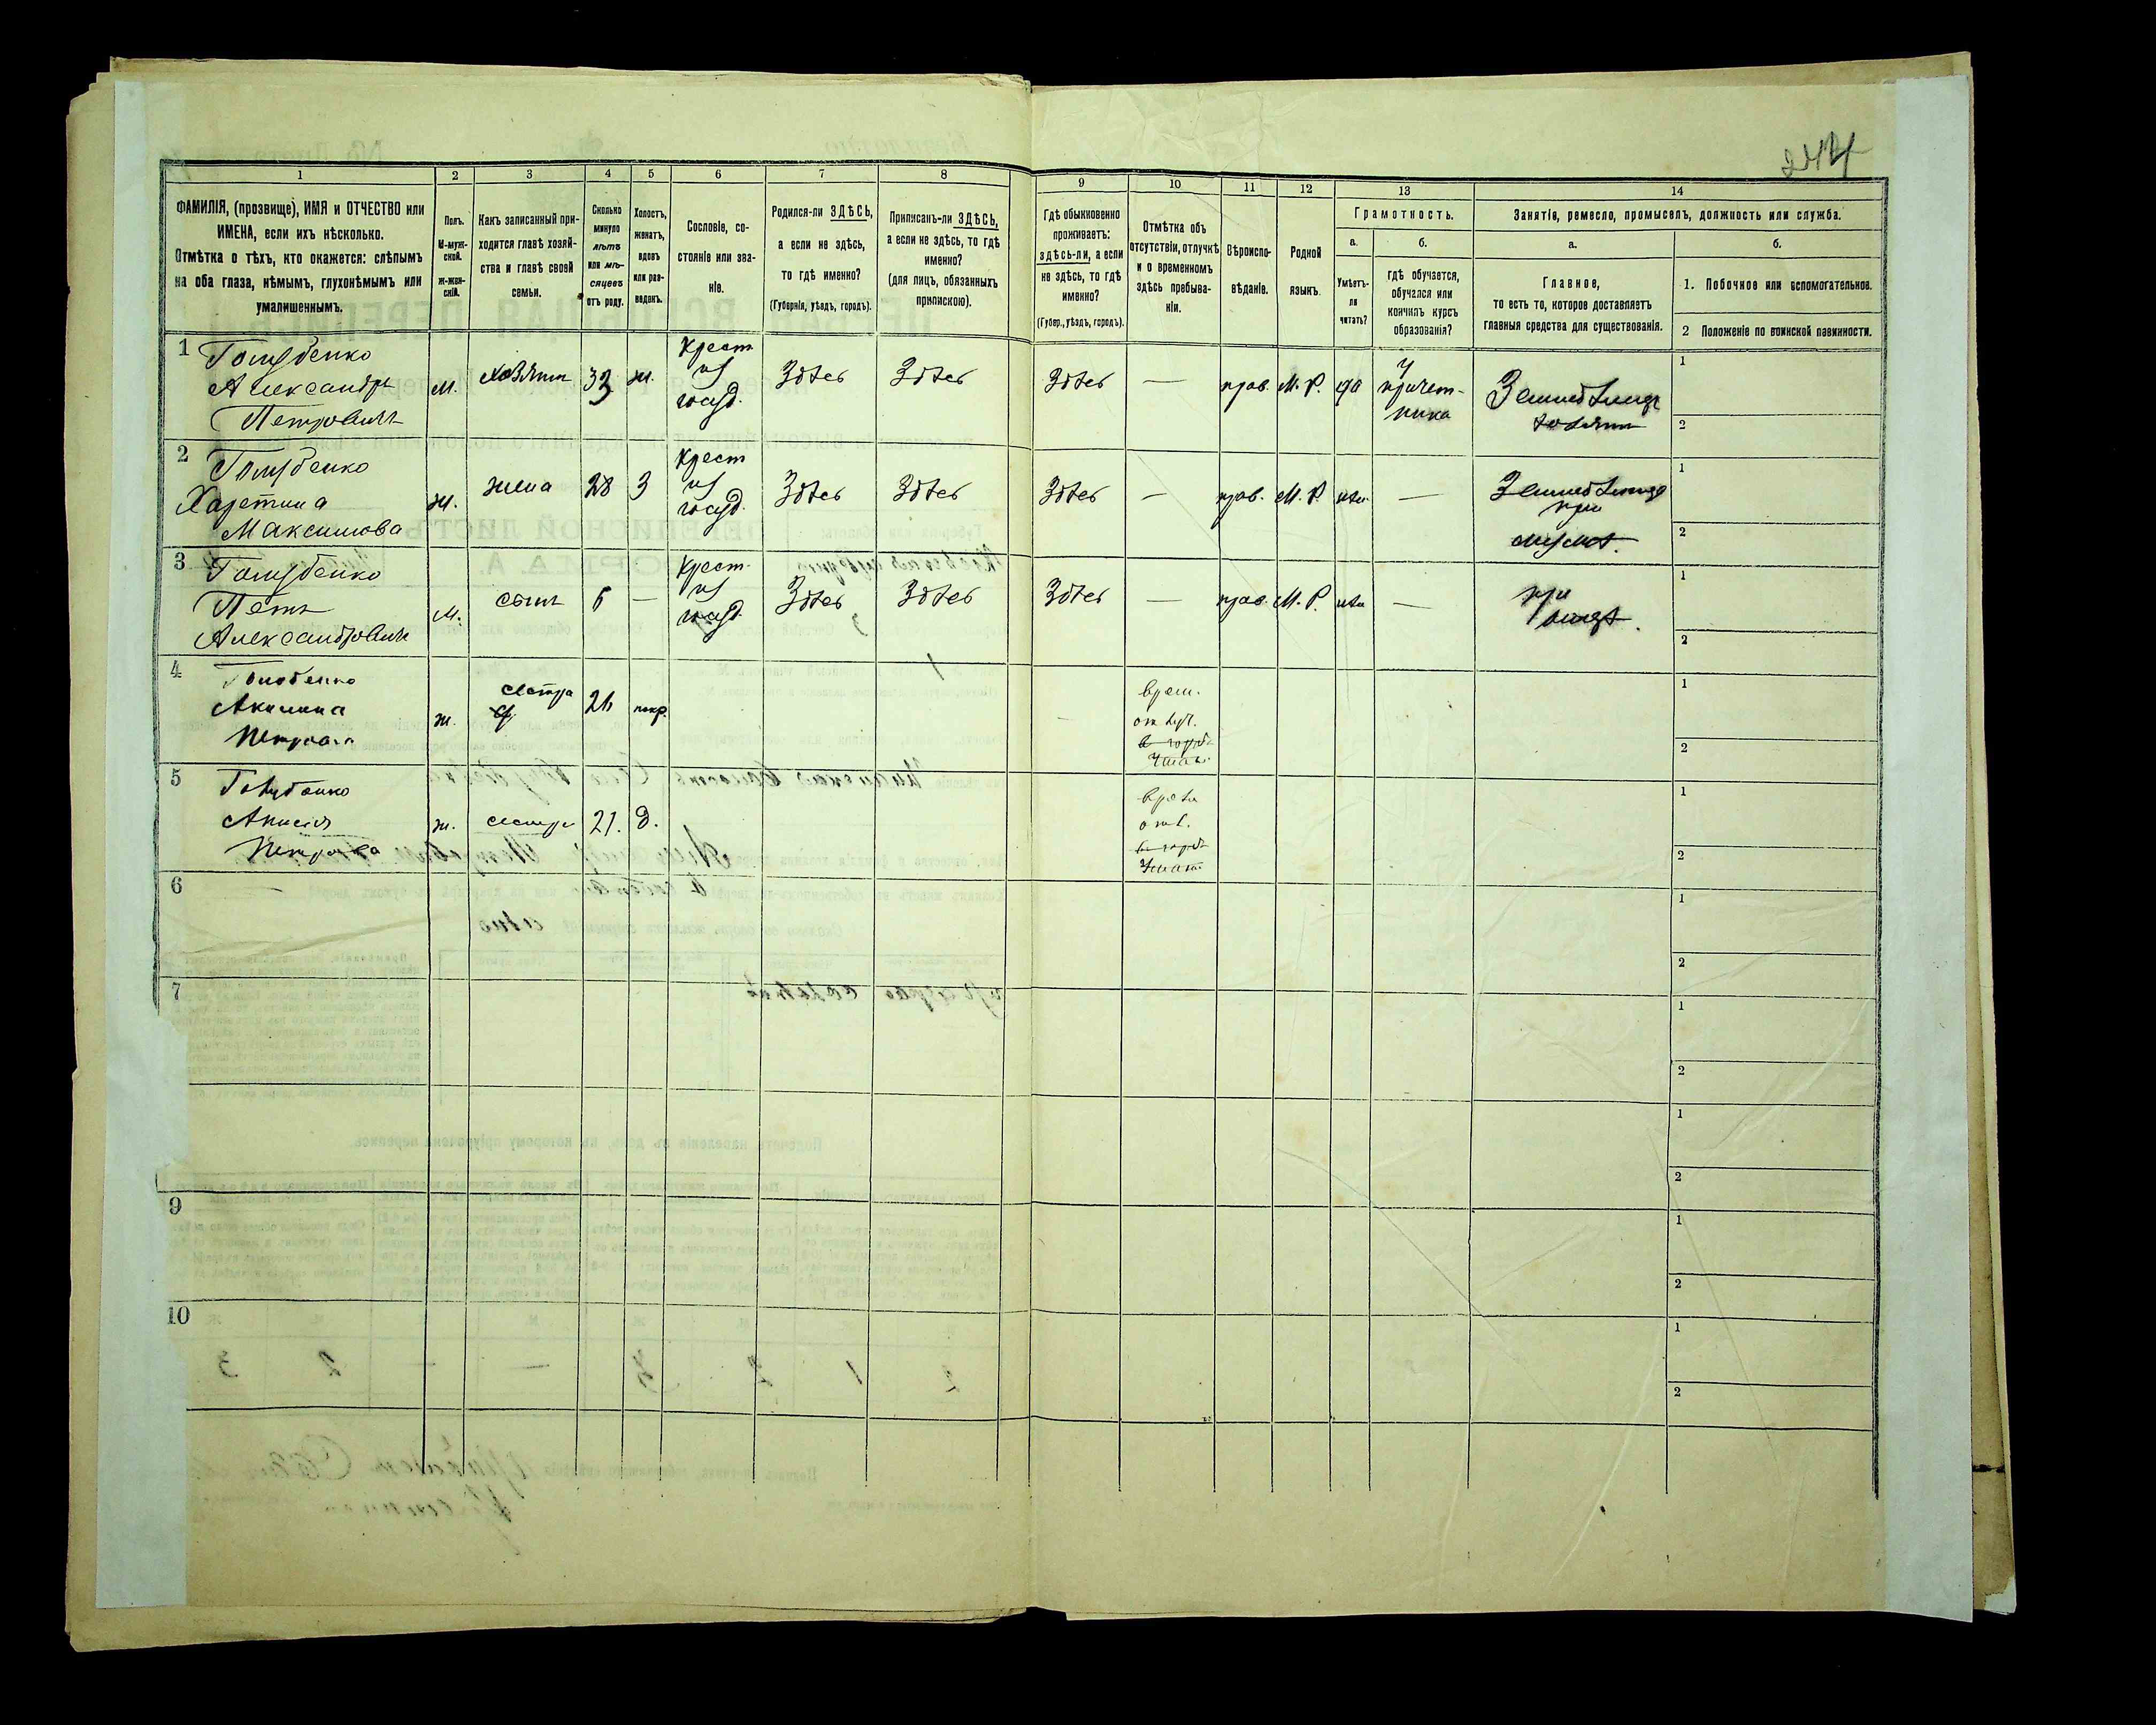 244
1 2 3 4 5 6 7 8 9 10 11 12 13 14
ФАМИЛІЯ, (прозвище), ИМЯ и ОТЧЕСТВО или
ИМЕНА, если ихъ нѣсколько.
Отмѣтка о тѣхъ, кто окажется: слѣпымъ
на оба глаза, нѣмымъ, глухонѣмымъ или
умалишеннымъ.
Полъ.
М-муж-
ской.
Ж-жен-
скій.
Какъ записанный при-
ходится главѣ хозяй-
ства и главѣ своей
семьи.
Сколько
минуло
лѣтъ
или мѣ-
сяцевъ
отъ роду.
Холостъ,
женатъ,
вдовъ
или раз-
веденъ.
Сословіе, со-
стояніе или зва-
ніе.
Родился-ли ЗДѢСЬ,
а если не здѣсь,
то гдѣ именно?
(Губернія, уѣздъ, городъ).
Приписанъ-ли ЗДѢСЬ,
а если не здѣсь, то гдѣ
именно?
(для лицъ, обязанныхъ
припискою).
Гдѣ обыкновенно
проживаетъ:
здѣсь-ли, а если
не здѣсь, то гдѣ
именно?
(Губер., уѣздъ, городъ).
Отмѣтка объ
отсутствіи, отлучкѣ
и о временномъ
здѣсь пребыва-
ніи.
Вѣроиспо-
вѣданіе.
Родной
языкъ.
Грамотность.
а.
Умѣетъ-
ли
читать?
б.
гдѣ обучается,
обучался или
кончилъ курсъ
образованія?
Занятіе, ремесло, промыселъ, должность или служба.
а.
Главное,
то есть то, которое доставляетъ
главныя средства для существованія.
б.
1. Побочное или вспомогательное.
2 Положеніе по воинской повинности.
1
Голубенко
Александръ
Петровичъ
м.
хозяин
33
ж.
Крест
из
госуд.
Здѣсь
Здѣсь
Здѣсь
—
прав.
М. Р.
да
у
причет-
ника
Земледѣлецъ
хозяин
1
2
2
Голубенко
Харетина
Максимова
ж.
жена
28
З
Крест
из
госуд.
Здѣсь
Здѣсь
Здѣсь
—
прав.
М. Р.
—
при
1
2
3
Голубенко
Петъ
Александрович
м.
сынъ
6
—
Крест.
из
госуд.
Здѣсь
Здѣсь
Здѣсь
—
прав.
М. Р.
—
при
1
2
4
Голубенко
Акилина
Петровна
ж.
сестра
26
покр.
врем.
1
2
5
Голубенко
Анисія
ж.
сестра
21.
д.
1
2
6
1
2
7
1
2
1
2
9
1
2
10
1
2